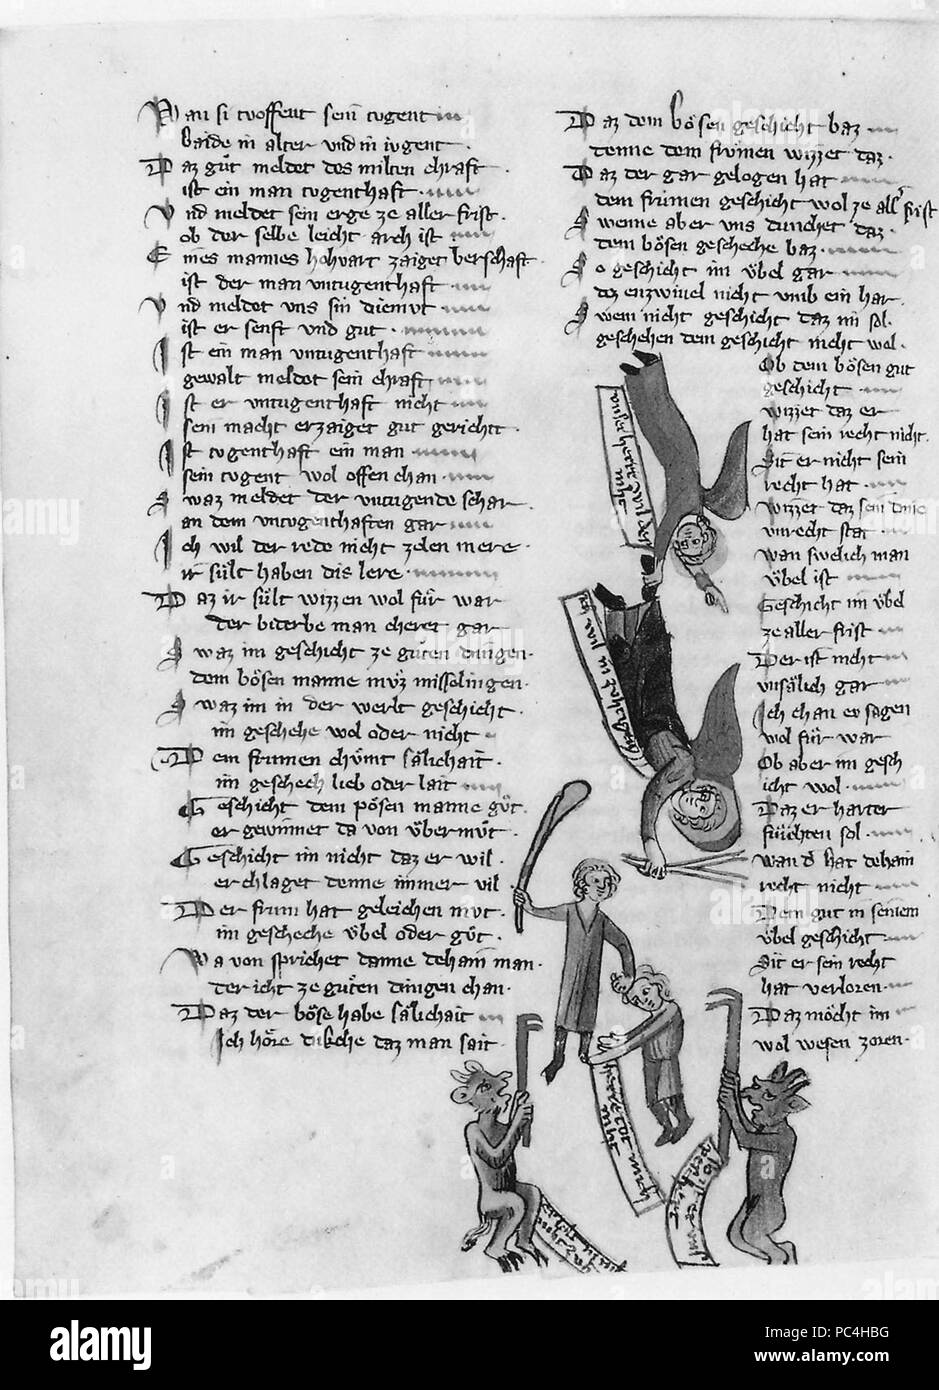 Wan si ỽoffent sein tugent
baide in alter vnd in iugent
Daz gůt meldet des milten chraft
ist ein man tugenthaft
Vnd meldet sein erge ze aller frist
ob der selbe leicht arch ist
Eines mannes hohvart zaiget
ist der man vntugenthaft
Vnd meldet vns sin diemvt
ist er senft vnd gut
Ist ein man vntugenthaft
gewalt meldet sein chraft
Ist er vntugenthaft nicht
sein macht erzaiget gut gericht
Ist tugenthaft ein man
sein tugent wol offen chan
Swaz meldet der vntugende schar
an dem vntugenthaften gar
Ich wil der rede nicht zelen mere
ir sült haben dis lere
Daz ir sült wizzen wol für war
der biderbe man cheret gar
Swaz im geschicht ze gůten dingen
dem bösen manne mvz misselingen
Swaz im in der werlt geschicht
im geschehe wol oder nicht
Dem frumen chümt sälichait
im geschech lieb oder lait
Geschicht dem pösen manne gůt
er gewinnet da von übermůt
Geschicht im nicht daz er wil
er chlaget denne immer vil
Der frum hat geleichen mvt
im geschehe übel oder gůt
Wa von sprichet danne dehain man
der icht ze gůten dingen chan
Daz der böse habe sälichait
Ich höre dikche daz man sait
Daz dem bösen geschicht baz
denne dem frümen wizzet daz
Daz der gar gelogen hat
dem frümen geschicht wol ze aller frist
Swenne aber vns dunchet daz
dem bösen geschehe baz
So geschicht im übel gar
des enzwiuel nicht vmb ein har
Swem nicht geschicht daz im sol
geschehen dem geschicht nicht wol
Ob dem bösen gut
geschicht
wizzet daz er
hat sein recht nicht
Sit er nicht sein
recht hat
wizzet daz sein dinc
vnrecht stat
wan swelich man
übel ist
Geschicht im übel
ze aller frist
Der ist nicht
vnsälich gar
Ich chan ev sagen
wol für war
Ob aber im gesch
icht wol
Daz er harter
fürchten sol
wand hat dehain
recht nicht
Dem gut in seinem
übel geschicht
Sit er sein recht
hat verloren
Daz möcht im
wol wesen zoren
vnser herre wil der
niht
herre töt mich
niht
alamy
PC4HBG
www.alamy.com